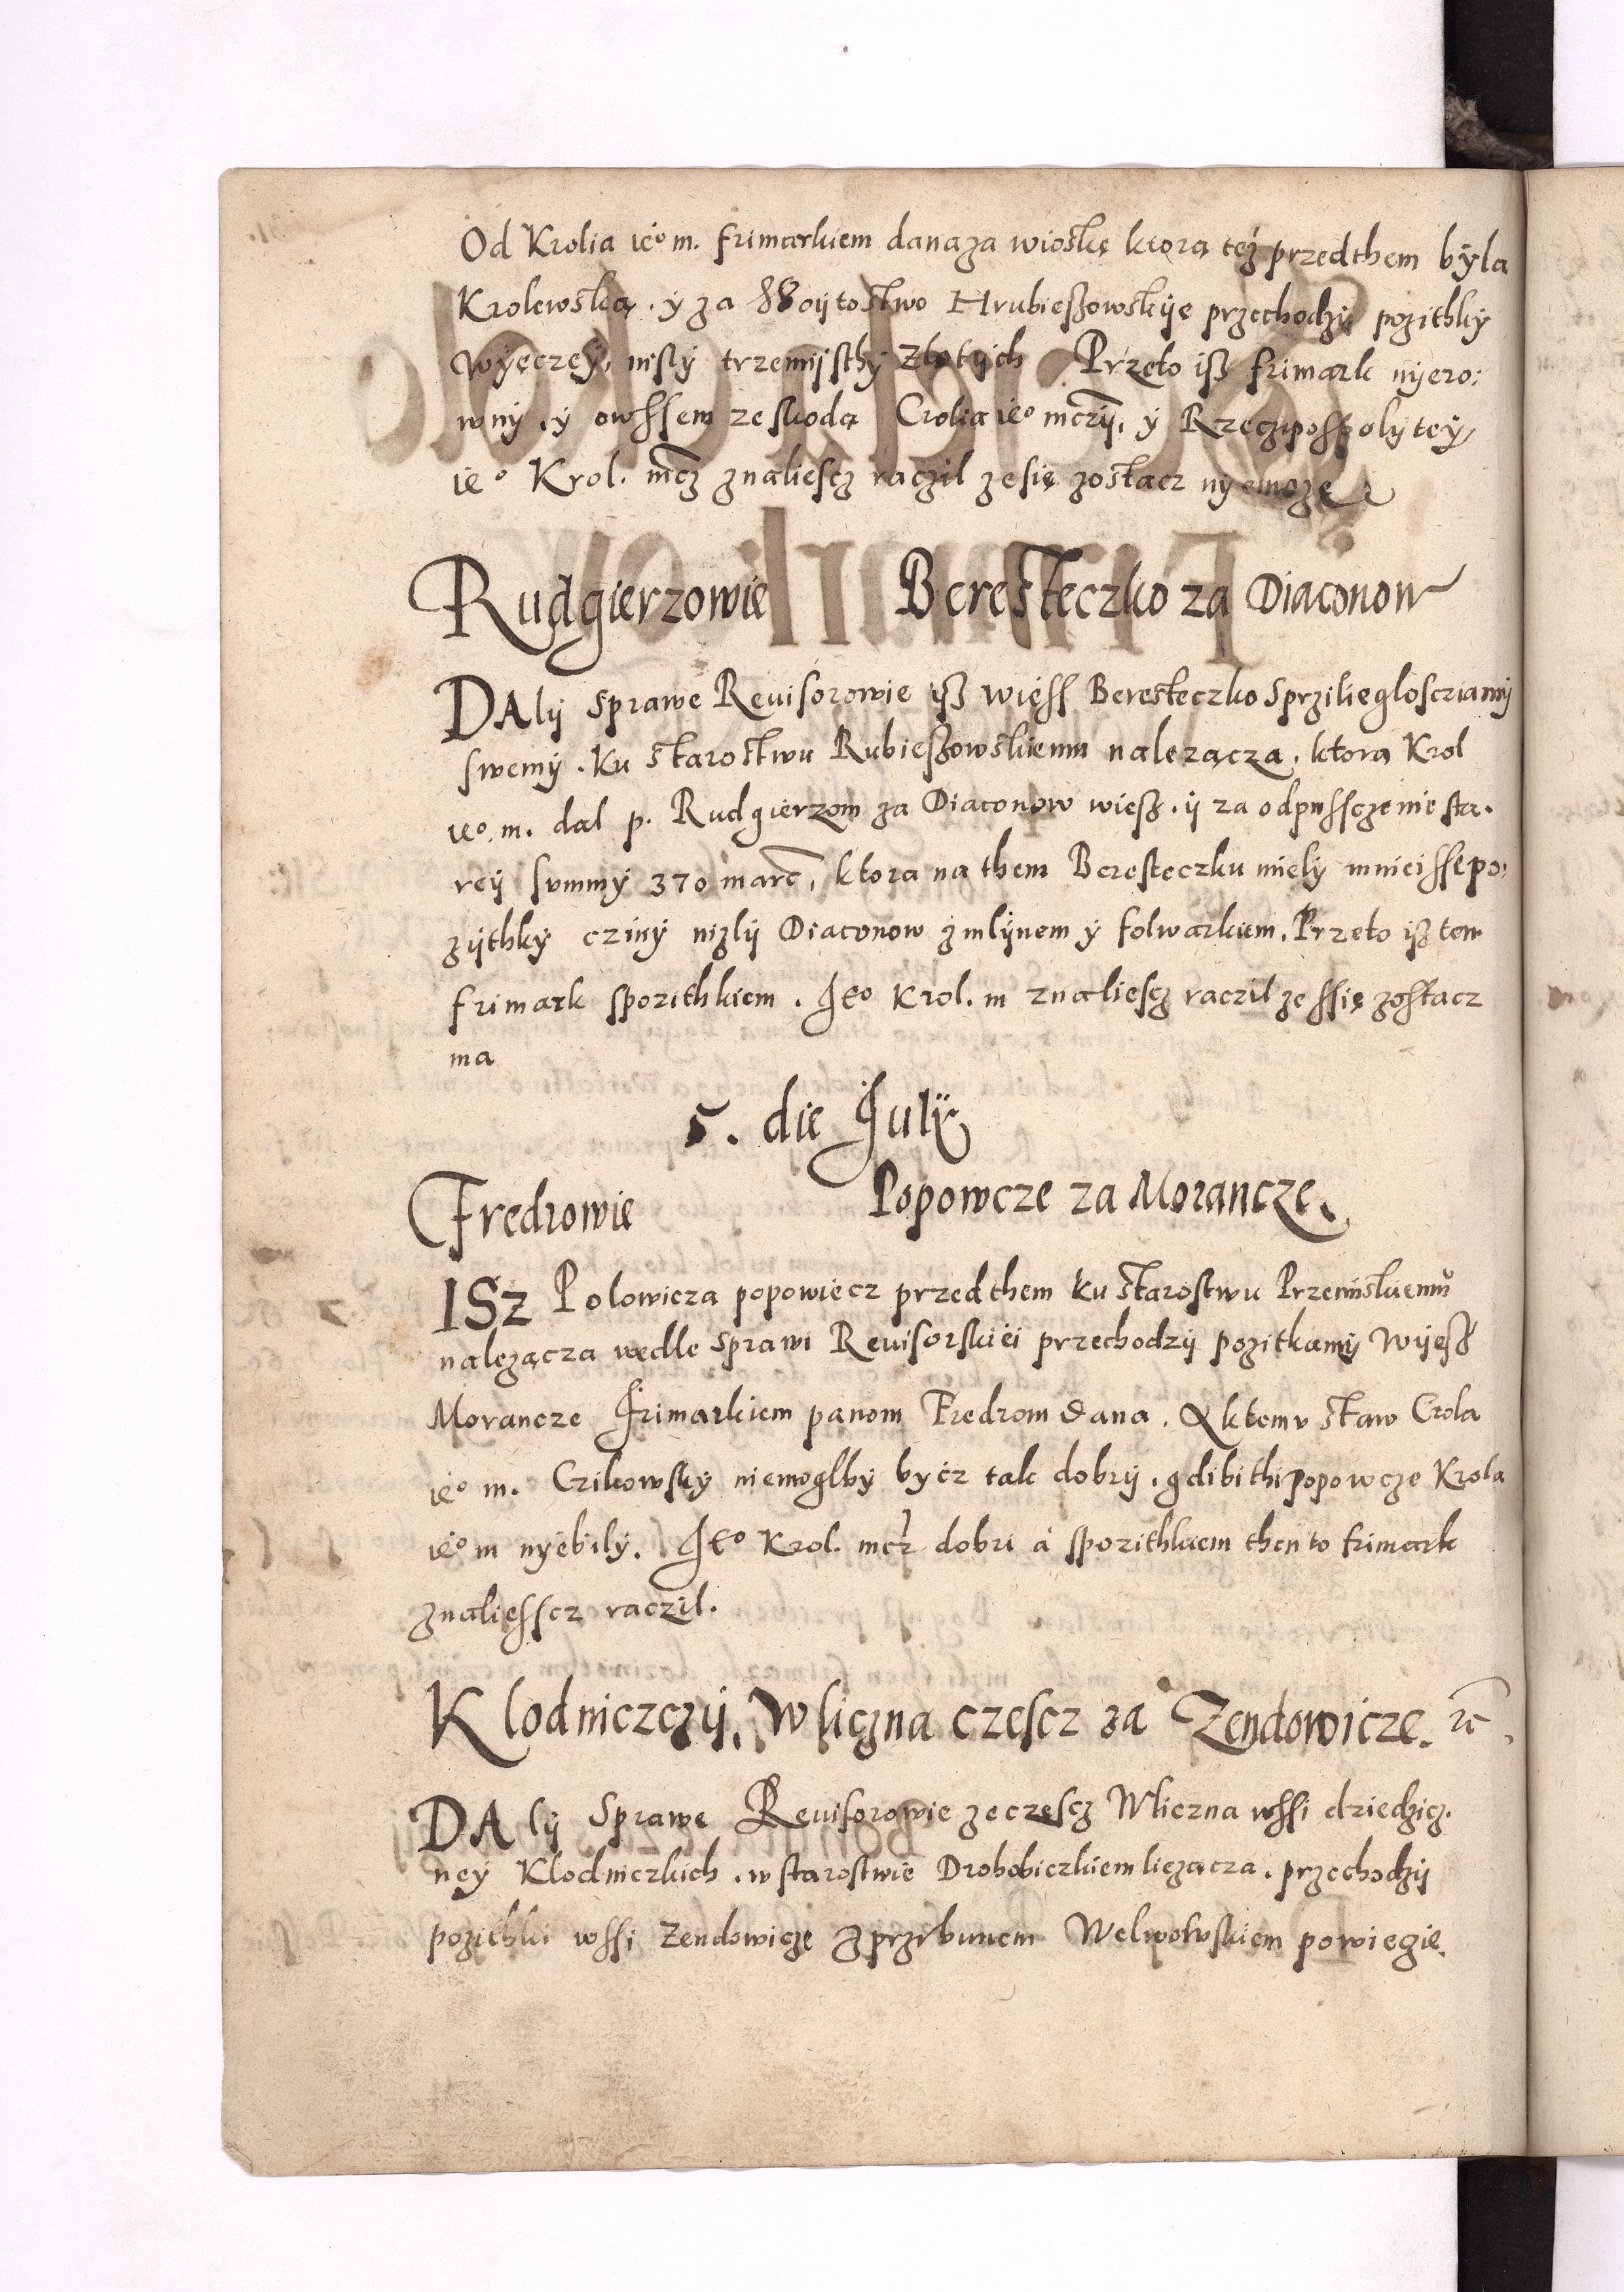 Od Krolia ieº m. frimarkiem dana za wioskę ktora też przedthem była
Krolewska. ÿ za Woijtostwo Hrubieszowskije przechodzÿ pozithkÿ
Wyęczeÿ, nisly trzemijsthÿ złotijch Przeto isz frimark nijero:
wnÿ, ÿ owssem ze skodą Crolia ieº mczÿ, ÿ Rzeczipospolyteÿ,
ieº Krol. mcz znaliescz raczil ze się zostacz nÿemoze
Rudgierzowie Beresteczko za Diaconow
DAlÿ sprawe Reuisorowie isz wiess Beresteczko sprziliegloscziamÿ
swemÿ. Ku starostwu Rubieszowskiemu nalezącza. ktorą Krol
ieº m. dal p. Rudgierzom za Diaconow wiesz. ÿ za odpussczenie sta.
reÿ summÿ 370 marc, ktora na them Beresteczku mielÿ mnieisse po:
zÿthkÿ czinÿ nizlÿ Diaconow z mlÿnem ÿ folwarkiem. Przeto isz ten
frimark spozithkiem. Jeº Krol. m znaliescz raczil ze ssię zostacz
ma
5. die Julÿ
Fredrowie Popowcze za Morancze.
ISz Polowicza popowiecz przedthem ku starostwu Przemiskiemu
nalezącza wedle sprawi Reuisorskiei przechodzÿ pozitkamÿ Wijesz
Morancze frimarkiem panom Fredrom dana. A ktemv staw Crola
ieº m. Czikowskÿ niemoglbÿ bycz tak dobrÿ. gdibithi popowcze Krola
ieº m nÿebilÿ. Jeº Krol. mcz dobri á spozithkiem then to frimark
znaliesscz raczil.
Klodniczczÿ. W liczna czescz za Zendowicze. ꝛc.
DAlÿ sprawę Reuisorowie ze czescz Wliczna wssi dziedzicz.
neÿ Klodniczkich. w starostwie Drohobiczkiem liezącza. przechodzÿ
pozithki wssi Zendowicze Welwowskiem powiecie